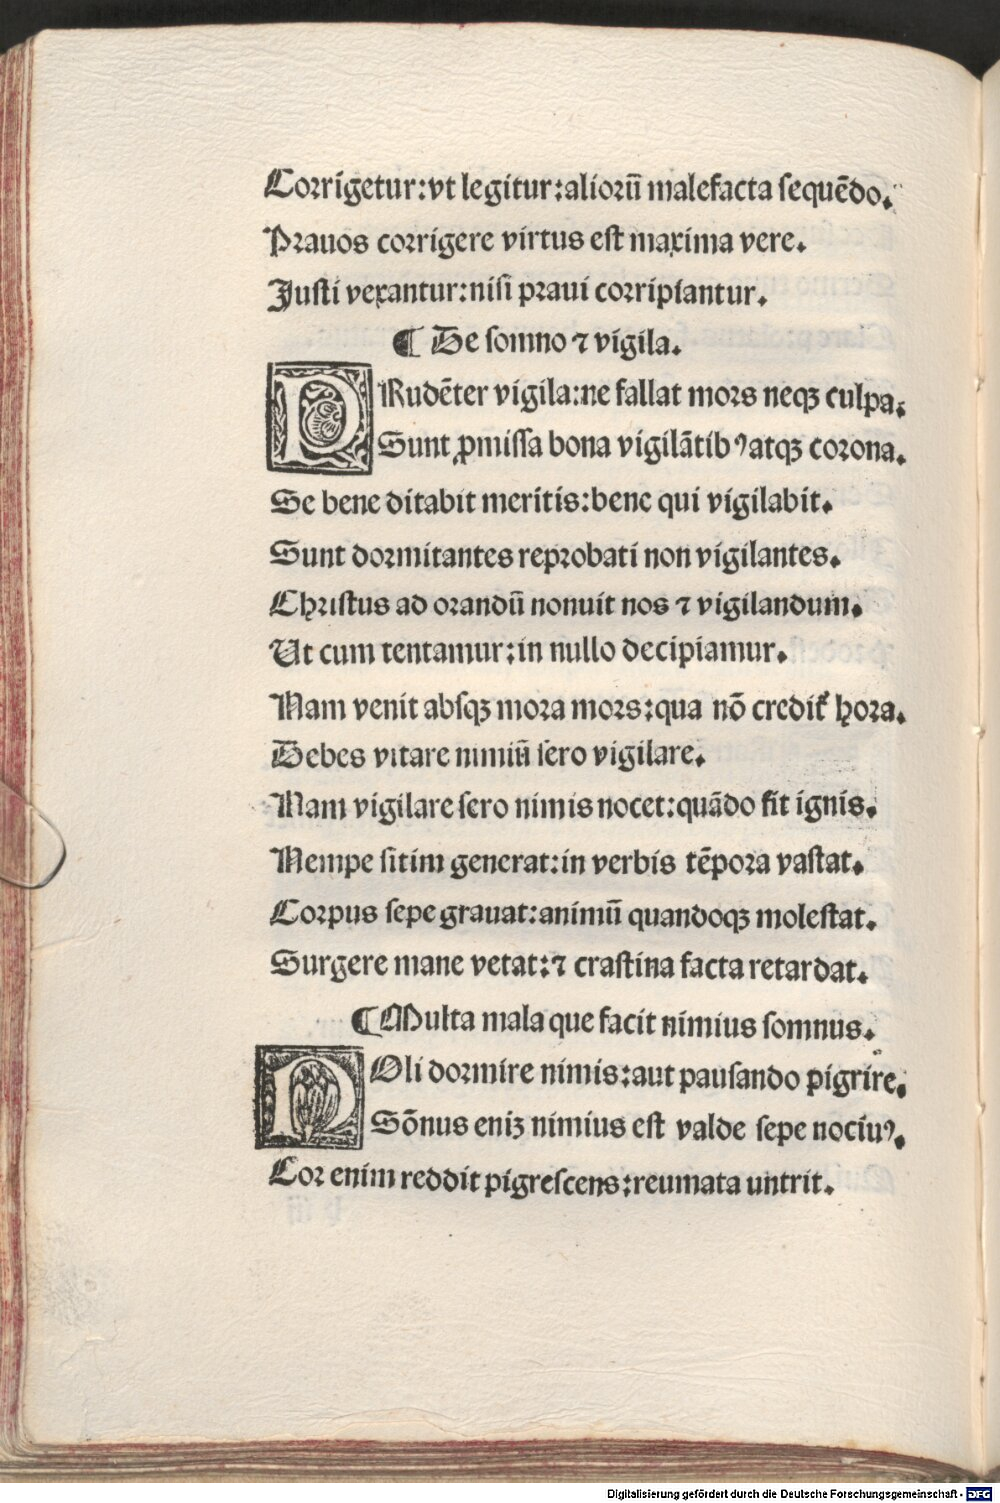 Corrigetur:vt legitur:alioru̅ malefacta seque̅do.
Prauos corrigere virtus est maxima vere.
Justi vexantur:nisi praui corripiantur.
¶ De somno ⁊ vigila.
PRude̅ter vigila:ne fallat mors neqꝫ culpa.
Sunt ꝓmissa bona vigila̅tibꝰ atqꝫ corona.
Se bene ditabit meritis:bene qui vigilabit.
Sunt dormitantes reprobati non vigilantes.
Christus ad orandu̅ nonuit nos ⁊ vigilandum.
Ut cum tentamur:in nullo decipiamur.
Nam venit absqꝫ mora mors:qua no̅ credit̉ hora.
Debes vitare nimiu̅ sero vigilare.
Nam vigilare sero nimis nocet:qua̅do fit ignis.
Nempe sitim generat:in verbis te̅pora vastat.
Corpus sepe grauat:animu̅ quandoqꝫ molestat.
Surgere mane vetat:⁊ crastina facta retardat.
¶ Multa mala que facit nimius somnus.
NOli dormire nimis:aut pausando pigrire.
So̅nus eniꝫ nimius est valde sepe nociuꝰ.
Cor enim reddit pigrescens:reumata untrit.
Digitalisierung gefördert durch die Deutsche Forschungsgemeinschaft - DFG